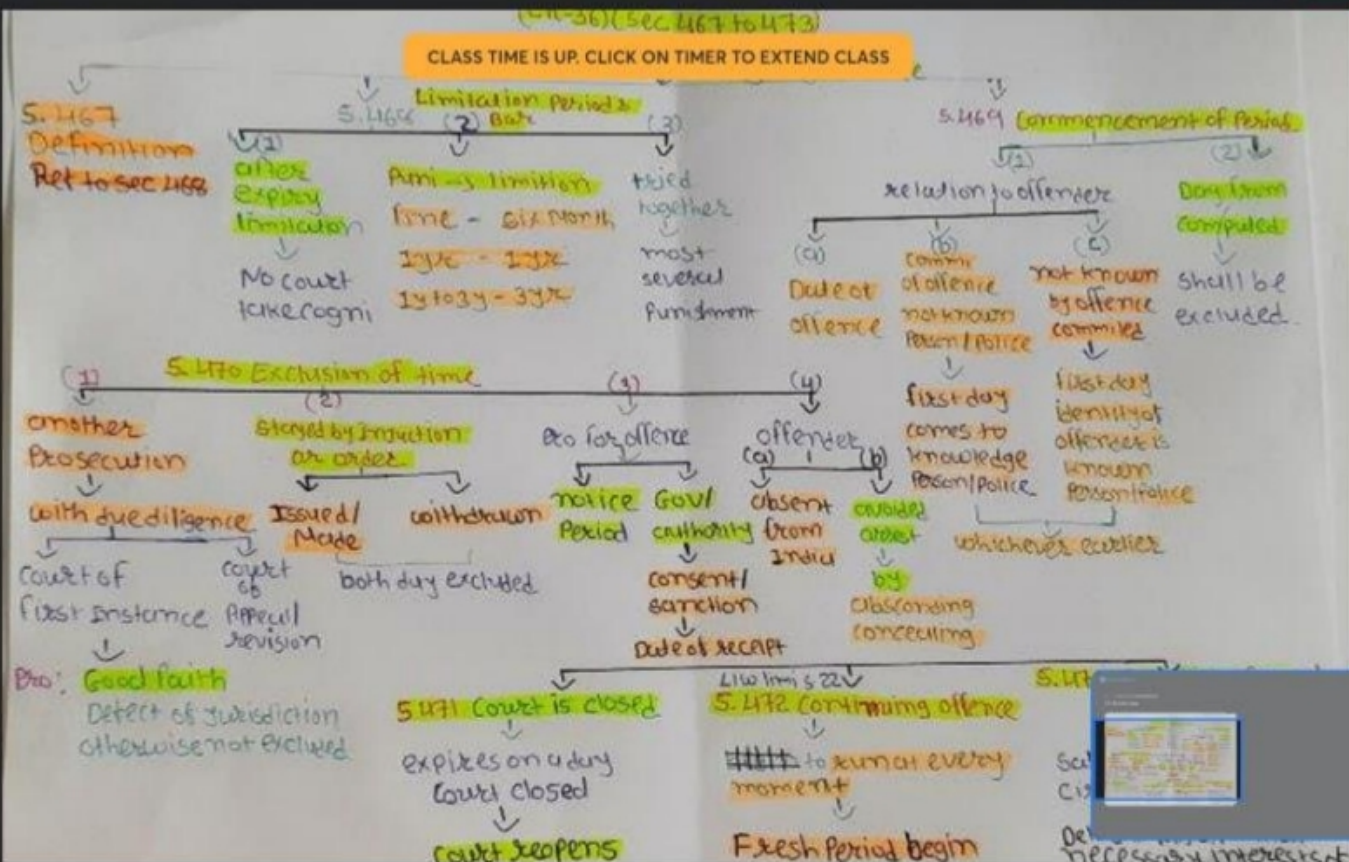 (Ch-36) (Sec 467 to 473)
CLASS TIME IS UP. CLICK ON TIMER TO EXTEND CLASS
S. 467
Definition
Ref to sec 468
S.468 Limitation Periods
Bar
(1)
after
expiry
limitation
No court
take cogni
(2)
limition
Fine - Six Month
1yr - 1yr
1y to 3y - 3yr
(3)
tried
together
most
several
Punishment
S.469 Commencement of Period
(1)
relation to offender
(a)
Date of
offence
(b)
comm.
of offence
not known
Person/Police
first day
comes to
knowledge
Person/Police
(c)
not known
by offence
commited
first day
identity of
offender is
known
Person/Police
whichever earlier
(2)
Day from
computed
shall be
excluded.
S.470 Exclusion of time
(1)
another
Prosecution
with due diligence
court of
first Instance
court
of
Appeal/
revision
Pro: Good faith
Defect of Jurisdiction
otherwise not excluded
(2)
Stayed by Injuction
or order
Issued/
Made
withdrawn
both day excluded
(3)
Pro for offence
notice
Period
Gov/
authority
consent/
sanction
Date of receipt
(4)
offender
(a)
absent
from
India
(b)
avoided
arrest
by
absconding
concealing
S 471 Court is closed
expires on a day
Court closed
court reopens
S. 472 Continuing offence
to run at every
moment
Fresh Period begin
S.47